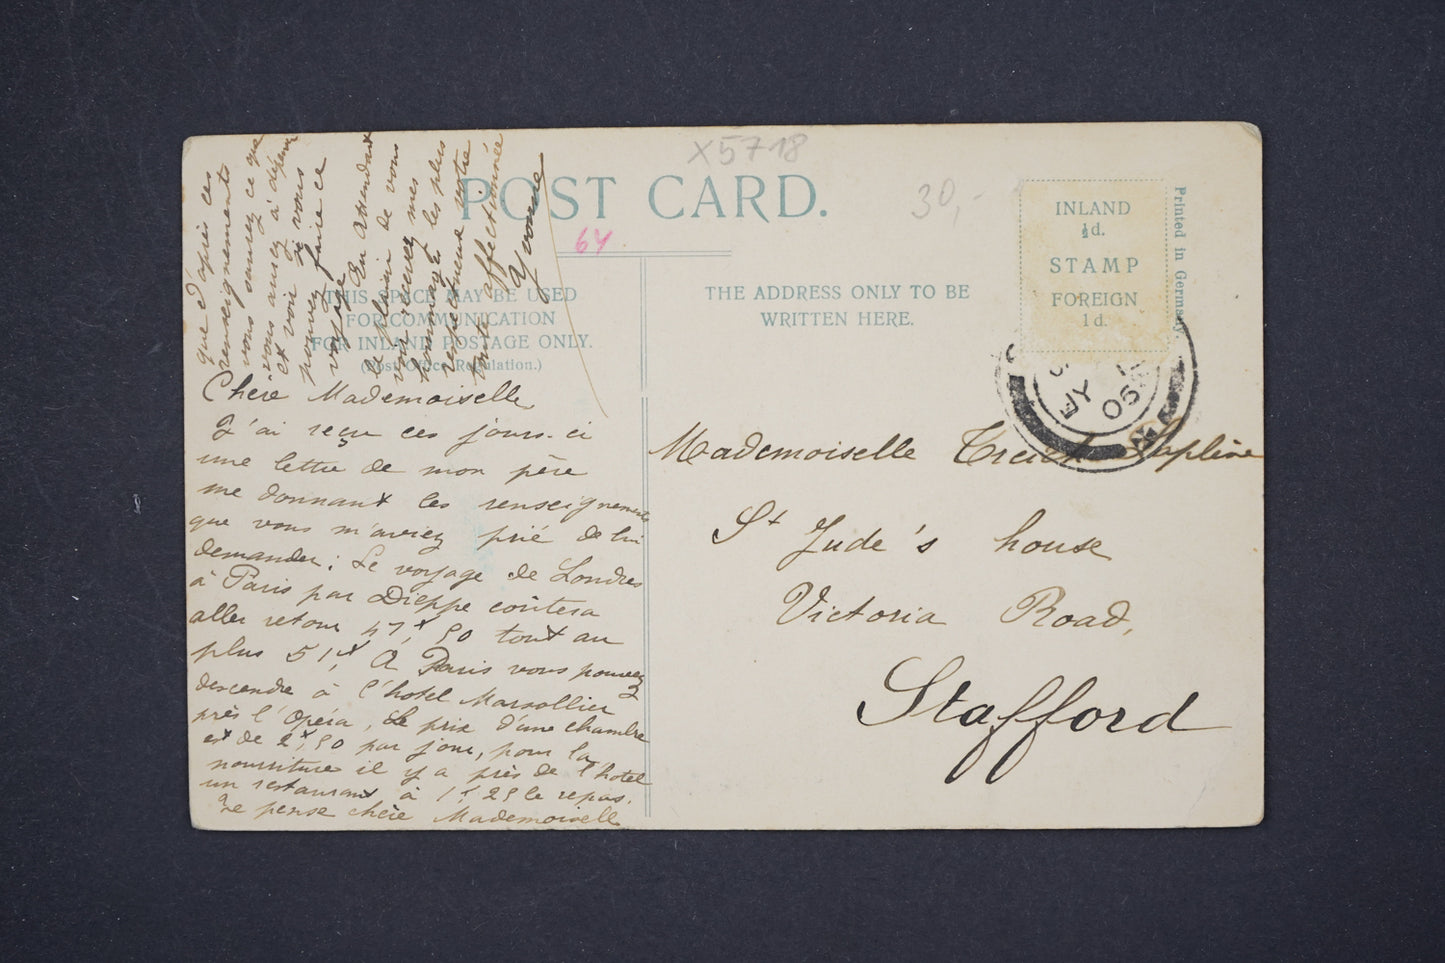 X5718
POST CARD.
30,-
64
INLAND
½d.
STAMP
FOREIGN
1d.
Printed in Germany
THIS SPACE MAY BE USED
FOR COMMUNICATION
FOR INLAND POSTAGE ONLY.
(Post Office Regulation.)
THE ADDRESS ONLY TO BE
WRITTEN HERE.
Chère Mademoiselle
J'ai reçu ces jours-ci
une lettre de mon père
me donnant les renseignements
que vous m'aviez prié de lui
demander; Le voyage de Londres
à Paris par Dieppe coûtera
aller retour 47f,50 tout au
plus 51f, A Paris vous pouvez
descendre à l'hotel Marsollier
près l'Opéra, Le prix d'une chambre
est de 2f,50 par jour, pour la
nourriture il y a près de l'hotel
un restaurant à 1f,25 le repas.
Je pense chère Mademoiselle
que d'après ces
renseignements
vous saurez ce que
vous aurez à dépenser
et voir si vous
pourrez faire ce
voyage
En attendant
le plaisir de vous
voir recevez mes
hommages les plus
respectueux votre
toute affectionnée
Yvonne
Mademoiselle
St Jude's house
Victoria Road,
Stafford